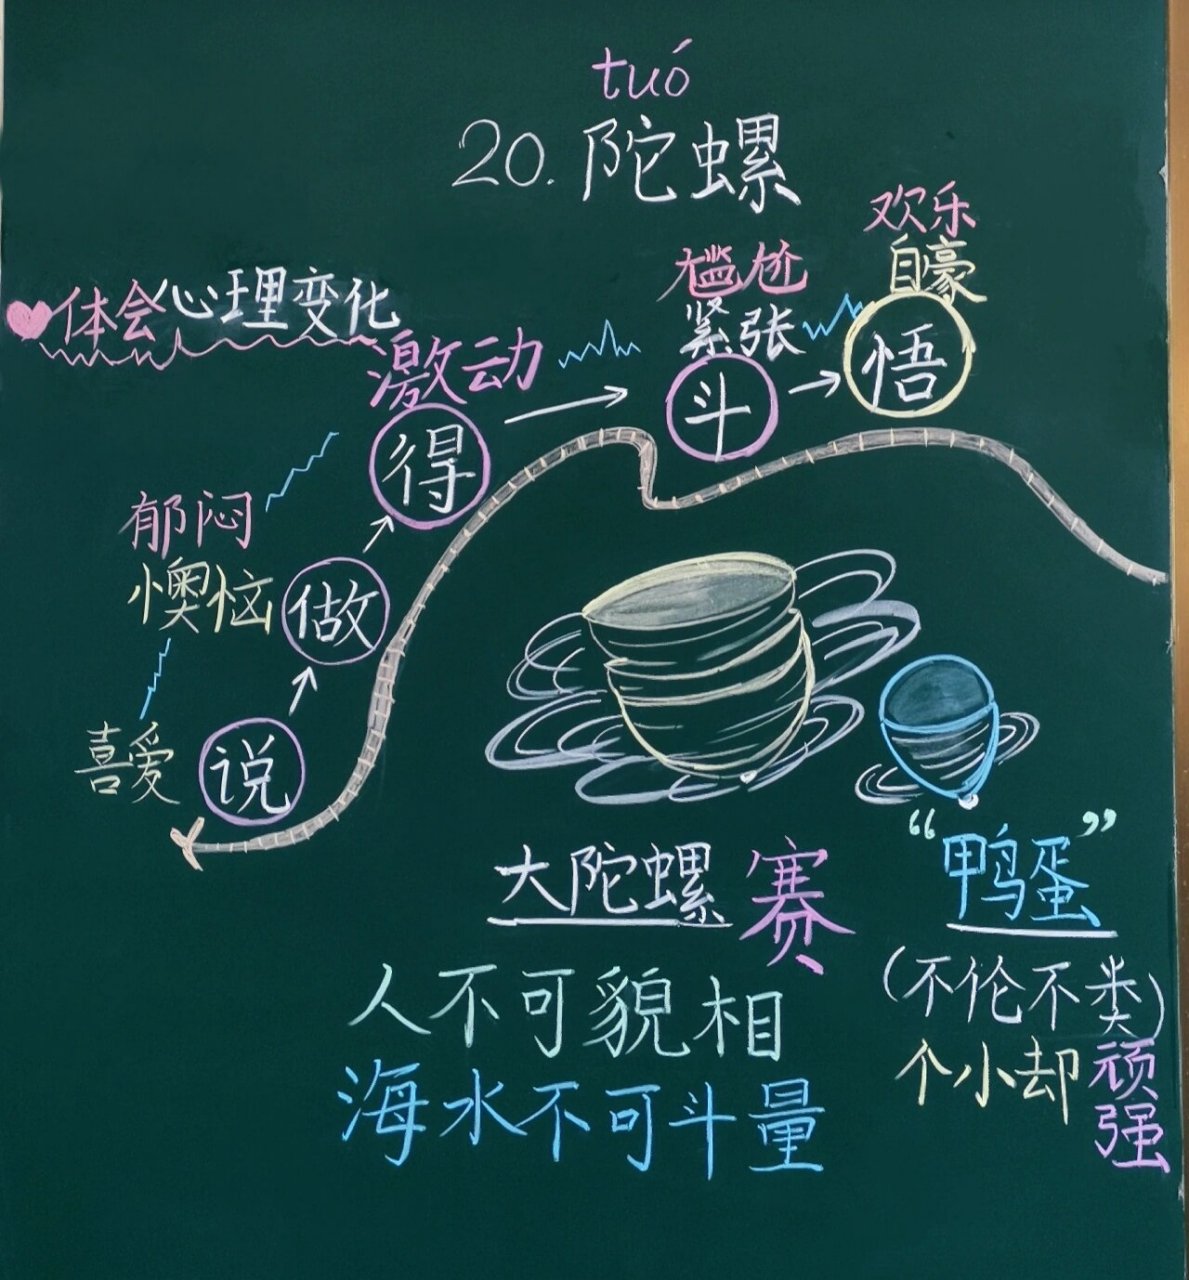 tuó
20.陀螺
体会心理变化
欢乐
自豪
悟
尴尬
紧张
斗
激动
得
郁闷
懊恼
做
喜爱
说
大陀螺 赛 “鸭蛋”
(不伦不类)
个小却顽强
人不可貌相
海水不可斗量